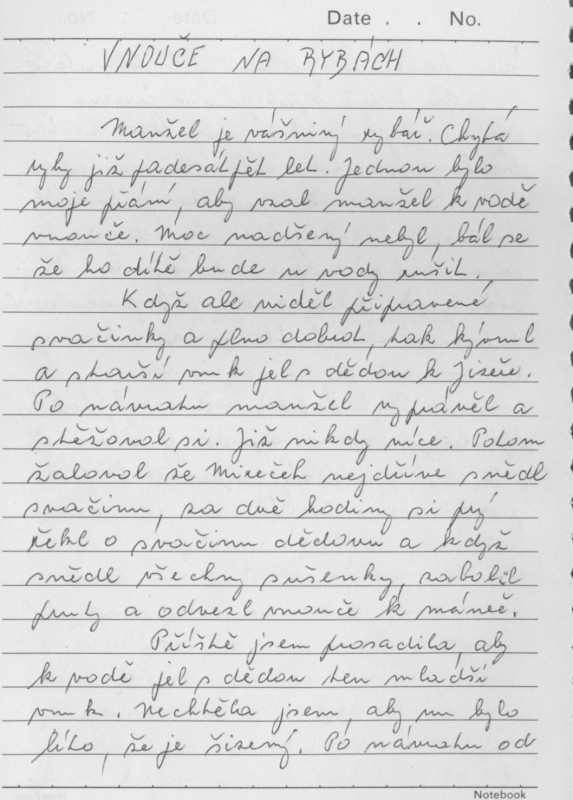 Date . . No.
VNOUČE NA RYBÁCH
Manžel je vášnivý rybář. Chytá
ryby již padesát pět let. Jednou bylo
moje přání, aby vzal manžel k vodě
vnouče. Moc nadšený nebyl, bál se
že ho dítě bude u vody rušit.
Když ale viděl připravené
svačinky a plno dobrot, tak kývnul
a starší vnuk jel s dědou k Jizeře.
Po návratu manžel vyprávěl a
stěžoval si. Již nikdy více. Potom
žaloval že Mireček nejdříve snědl
svačinu, za dvě hodiny si prý
řekl o svačinu dědovu a když
snědl všechny sušenky, zabalil
pruty a odvezl vnouče k mámě.
Příště jsem prosadila, aby
k vodě jel s dědou ten mladší
vnuk. Nechtěla jsem, aby mu bylo
líto, že je šizený. Po návratu od
Notebook